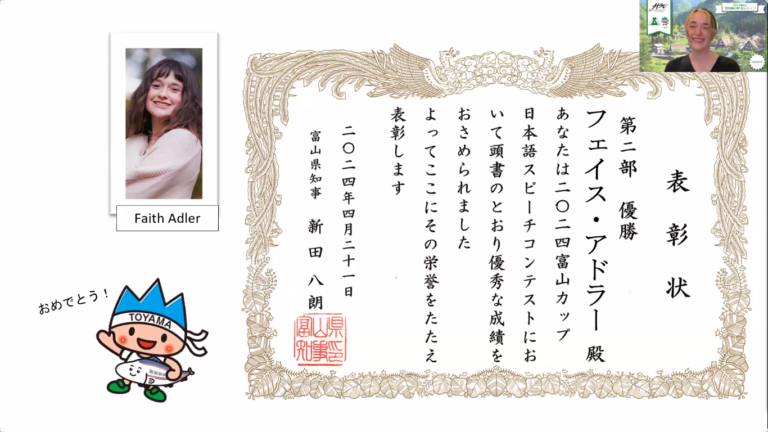 表彰状
第二部 優勝
フェイス・アドラー 殿
あなたは二〇二四富山カップ
日本語スピーチコンテストにお
いて頭書のとおり優秀な成績を
おさめられました
よってここにその栄誉をたたえ
表彰します
二〇二四年四月二十一日
富山県知事 新田八朗
富山県知事印
Faith Adler
おめでとう!
TOYAMA